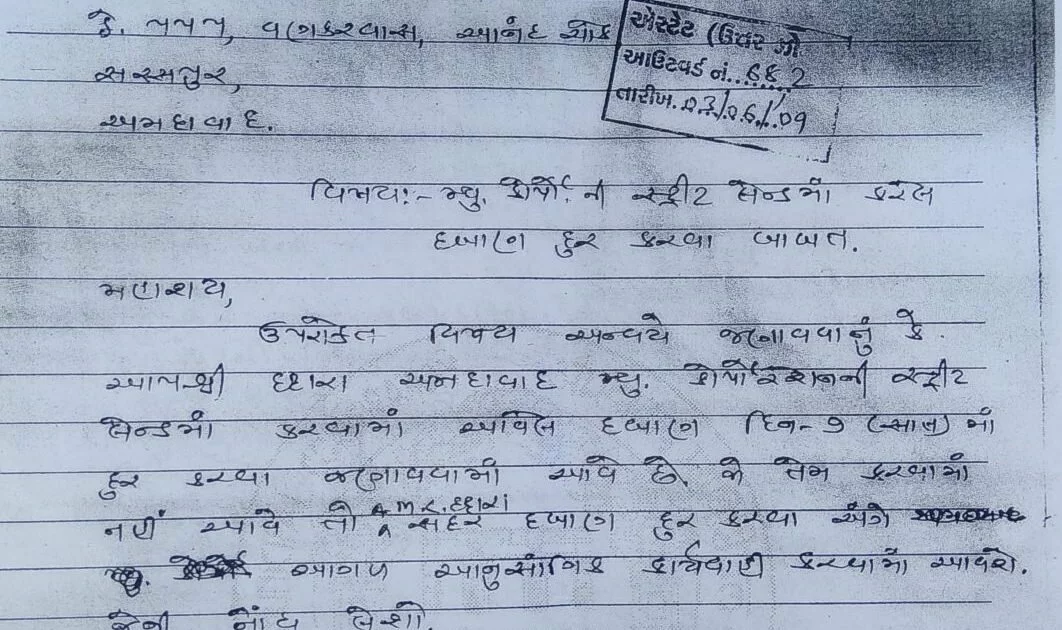 કે. ૫૫૫, વણકરવાસ, આનંદ ચોક
સરસપુર,
અમદાવાદ.
એસ્ટેટ (ઉત્તર ઝો
આઉટવર્ડ નં. ૬૬૨
તારીખ. ૨૩/૦૬/૦૧
વિષય:- મ્યુ. કોર્પો. ની સ્ટ્રીટ લેન્ડમાં કરેલ
દબાણ દુર કરવા બાબત.
મહાશય,
ઉપરોક્ત વિષય અન્વયે જણાવવાનું કે.
આપશ્રી દ્વારા અમદાવાદ મ્યુ. કોર્પોરેશનની સ્ટ્રીટ
લેન્ડમાં કરવામાં આવેલ દબાણ દિન-૭ (સાત) માં
દુર કરવા જણાવવામાં આવે છે. જો તેમ કરવામાં
નહીં આવે તો અ.મ્યુ.કો. દ્વારા સદર દબાણ દુર કરવા અંગે
મ્યુ. આગળ આનુસાંગિક કાર્યવાહી કરવામાં આવશે.
જેની નોંધ લેશો.